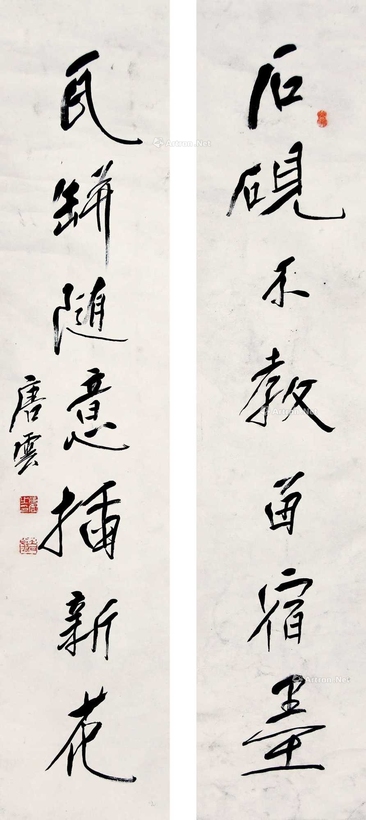 石硯不教留宿墨
瓦缾随意插新花
唐雲